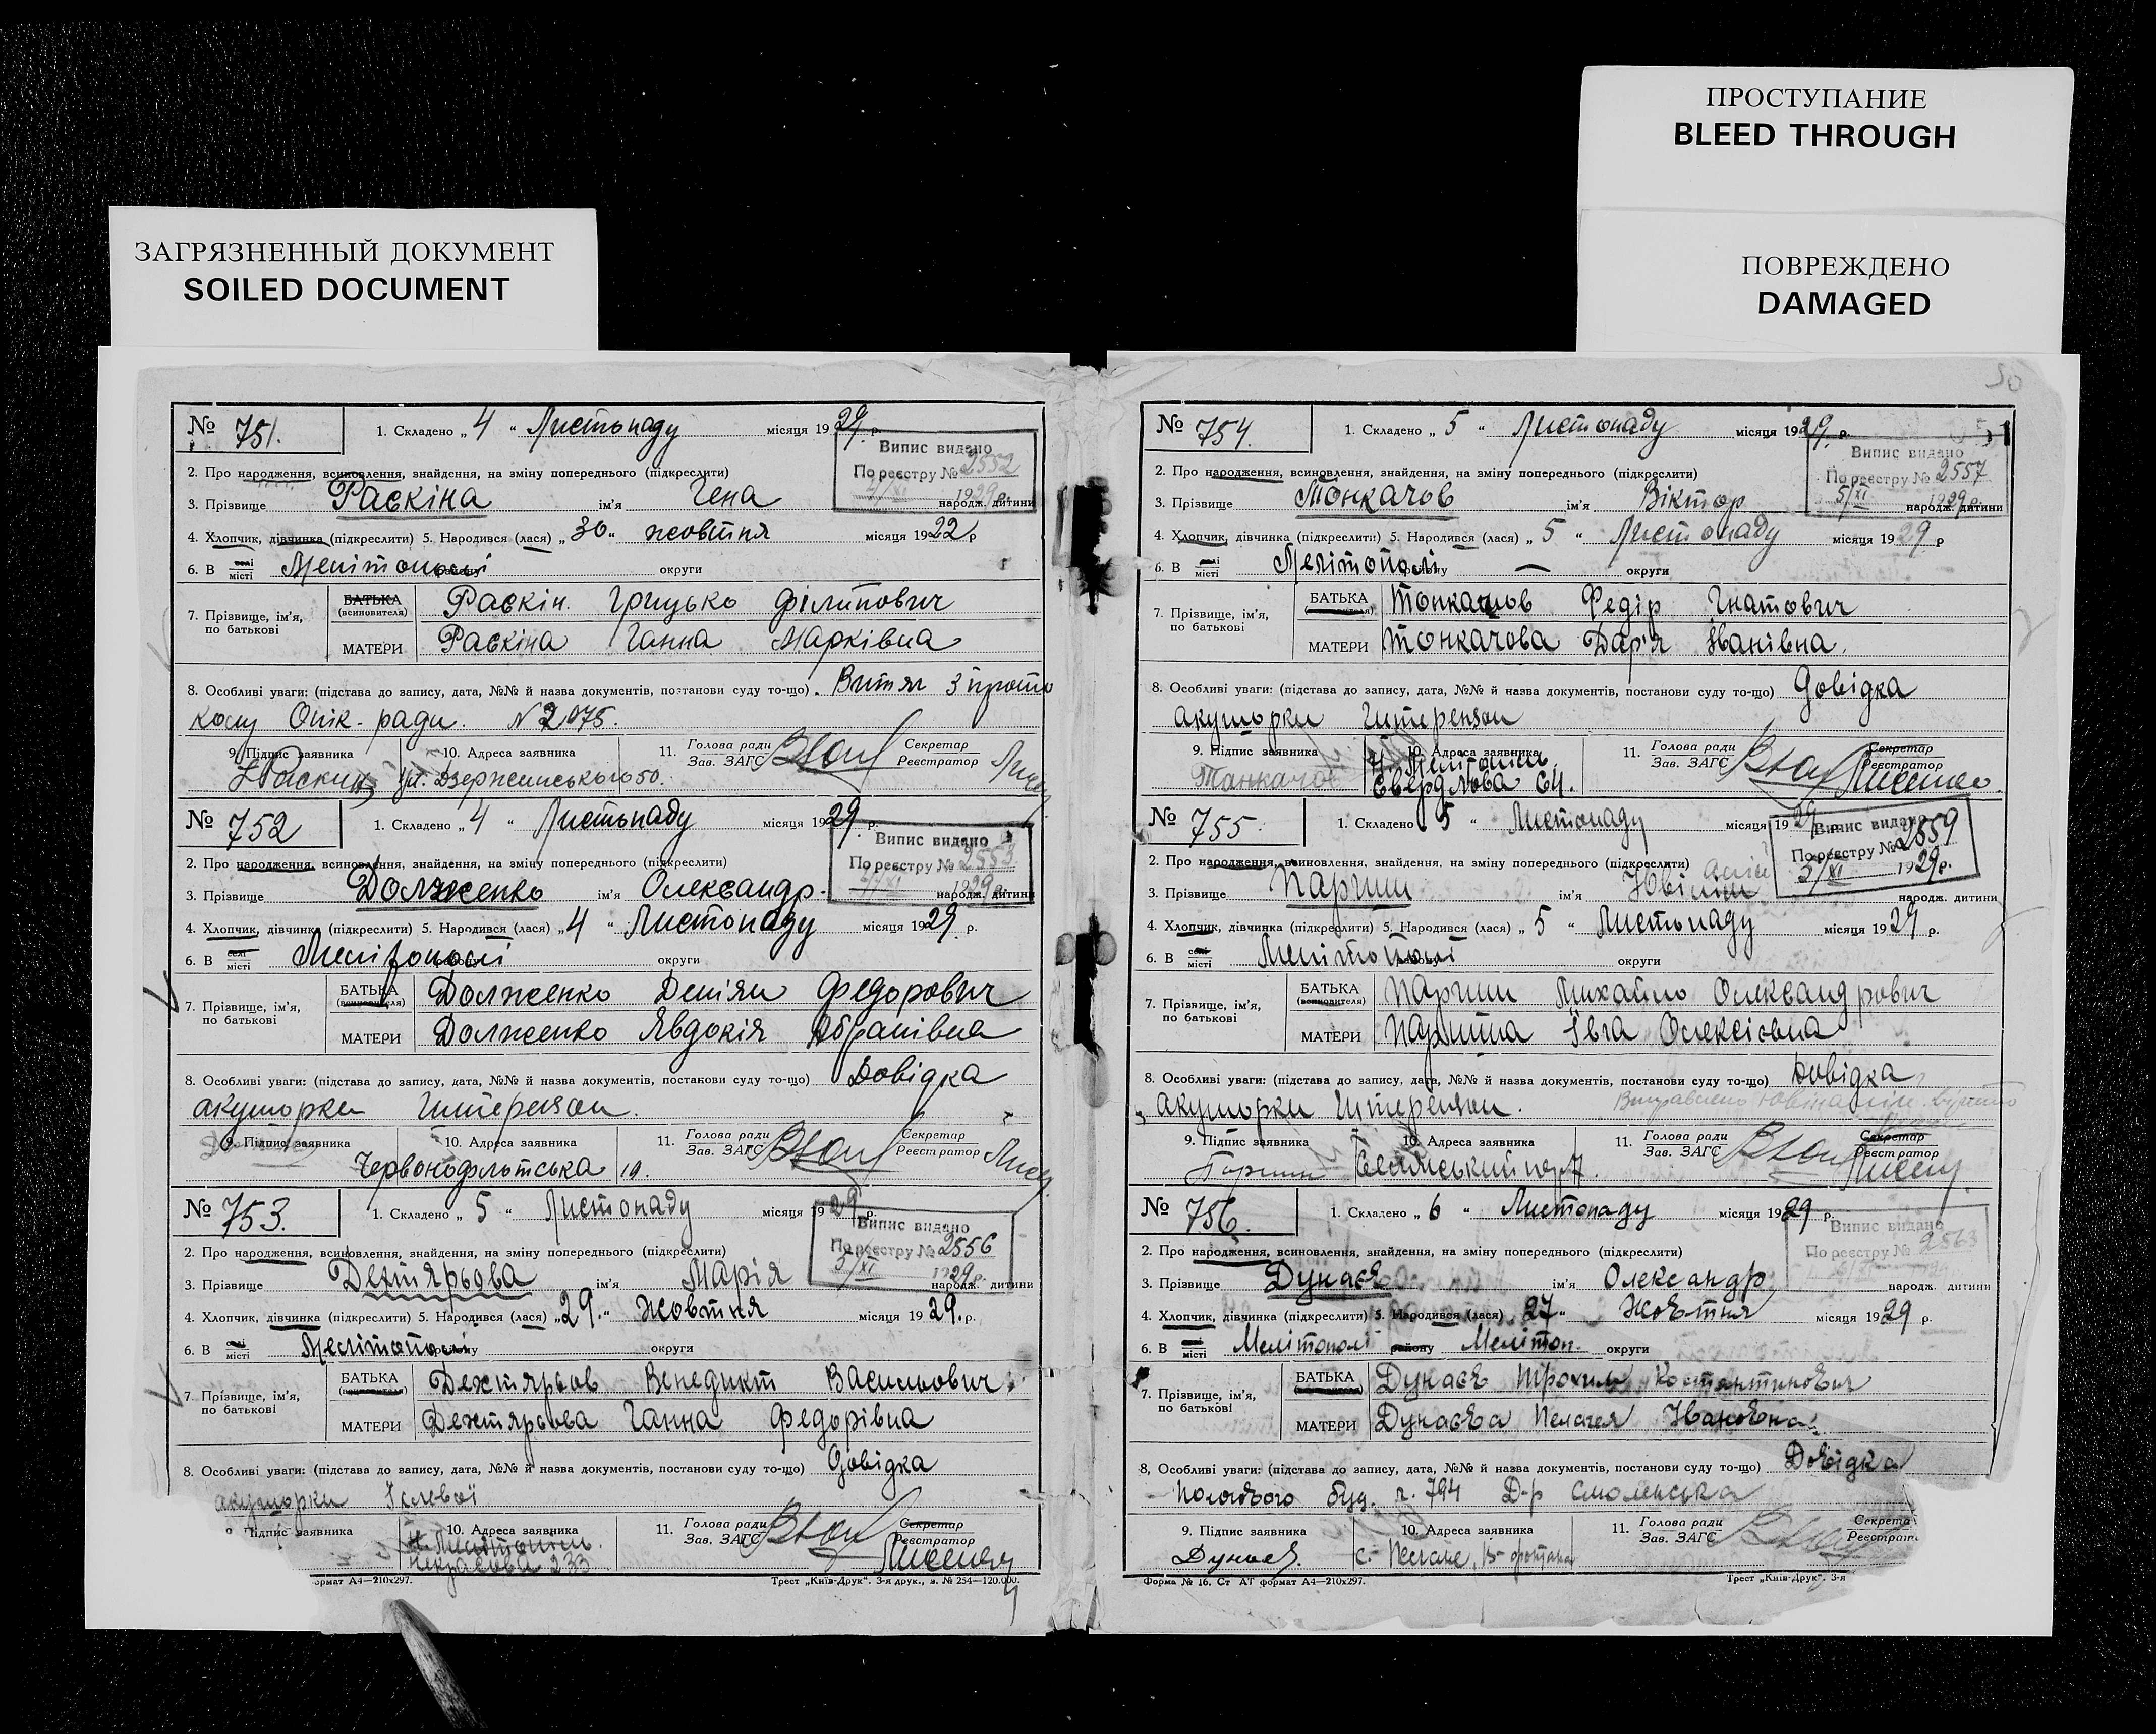 ЗАГРЯЗНЕННЫЙ ДОКУМЕНТ
SOILED DOCUMENT
ПРОСТУПАНИЕ
BLEED THROUGH
ПОВРЕЖДЕНО
DAMAGED
№ 751.
1. Складено „ 4 “ Листопаду місяця 1929 р.
Випис видано
По реєстру № 2552
1929 р.
2. Про народження, всиновлення, знайдення, на зміну попереднього (підкреслити)
3. Прізвище Раскіна ім'я Гена народж. дитини
4. Хлопчик, дівчинка (підкреслити) 5. Народився (лася) „ 30 “ жовтня місяця 1922 р
6. В селі місті Мелітополі району округи
7. Прізвище, ім'я, по батькові
БАТЬКА (всиновителя) Раскін Грицько Філіпович
МАТЕРИ Раскіна Ганна Марківна
8. Особливі уваги: (підстава до запису, дата, №№ й назва документів, постанови суду то-що) Витяг з прото
колу Опік. ради. № 2075.
9. Підпис заявника 10. Адреса заявника 11. Голова ради Зав. ЗАГС Секретар Реєстратор
Ул. Дзержинського 50.
№ 752
1. Складено „ 4 “ Листопаду місяця 1929 р.
Випис видано
По реєстру № 2553
1929 р.
2. Про народження, всиновлення, знайдення, на зміну попереднього (підкреслити)
3. Прізвище Долженко ім'я Олександр. народж. дитини
4. Хлопчик, дівчинка (підкреслити) 5. Народився (лася) „ 4 “ Листопаду місяця 1929 р.
6. В селі місті Мелітополі району округи
7. Прізвище, ім'я, по батькові
БАТЬКА (всиновителя) Долженко Деміян Федорович
МАТЕРИ Долженко Явдокія Абрамівна
8. Особливі уваги: (підстава до запису, дата, №№ й назва документів, постанови суду то-що) Довідка
акушорки Гитерман.
9. Підпис заявника 10. Адреса заявника 11. Голова ради Зав. ЗАГС Секретар Реєстратор
Червонофлотська 19.
№ 753.
1. Складено „ 5 “ Листопаду місяця 1929 р.
Випис видано
По реєстру № 2556
5/XI 1929 р.
2. Про народження, всиновлення, знайдення, на зміну попереднього (підкреслити)
3. Прізвище Дехтярьова ім'я Марія народж. дитини
4. Хлопчик, дівчинка (підкреслити) 5. Народився (лася) „ 29. “ Жовтня місяця 1929. р.
6. В селі місті Мелітополі району округи
7. Прізвище, ім'я, по батькові
БАТЬКА (всиновителя) Дехтярьов Венедикт Васильович
МАТЕРИ Дехтярьова Ганна Федорівна
8. Особливі уваги: (підстава до запису, дата, №№ й назва документів, постанови суду то-що) Довідка
акушорки
Підпис заявника 10. Адреса заявника 11. Голова ради Зав. ЗАГС Секретар Реєстратор
Некрасова 233
формат А4—210х297. Трест „Київ-Друк“. 3-я друк., з. № 254—120.000.
50
№ 754.
1. Складено „ 5 “ Листопаду місяця 1929 р.
Випис видано
По реєстру № 2557
5/XI 1929 р.
2. Про народження, всиновлення, знайдення, на зміну попереднього (підкреслити)
3. Прізвище Тонкачов ім'я Віктор народж. дитини
4. Хлопчик, дівчинка (підкреслити) 5. Народився (лася) „ 5 “ Листопаду місяця 1929 р
6. В селі місті Мелітополі району — округи
7. Прізвище, ім'я, по батькові
БАТЬКА (всиновителя) Тонкачов Федір Гнатович
МАТЕРИ Тонкачова Дар'я Іванівна.
8. Особливі уваги: (підстава до запису, дата, №№ й назва документів, постанови суду то-що) Довідка
акушорки Гитерман
9. Підпис заявника 10. Адреса заявника 11. Голова ради Зав. ЗАГС Секретар Реєстратор
м. Мелітополь.
Свердлова 64.
№ 755.
1. Складено 5 “ Листопаду місяця 1929
Випис видано
По реєстру № 2559
5/XI 1929 р.
2. Про народження, всиновлення, знайдення, на зміну попереднього (підкреслити)
3. Прізвище Паршин ім'я народж. дитини
4. Хлопчик, дівчинка (підкреслити) 5. Народився (лася) „ 5 “ Листопаду місяця 1929 р.
6. В селі місті Мелітополі району округи
7. Прізвище, ім'я, по батькові
БАТЬКА (всиновителя) Паршин Михайло Олександрович
МАТЕРИ Паршина Івга Олексієвна
8. Особливі уваги: (підстава до запису, дата, №№ й назва документів, постанови суду то-що) Довідка
акушорки Гитерман.
9. Підпис заявника 10. Адреса заявника 11. Голова ради Зав. ЗАГС Секретар Реєстратор
№ 756.
1. Складено „ 6 “ Листопаду місяця 1929 р.
Випис видано
По реєстру № 2563
2. Про народження, всиновлення, знайдення, на зміну попереднього (підкреслити)
3. Прізвище Дунаєв ім'я Олександр народж. дитини
4. Хлопчик, дівчинка (підкреслити) 5. Народився (лася) 27 “ Жовтня місяця 1929 р.
6. В селі місті Мелітополі району Мелітоп. округи
7. Прізвище, ім'я, по батькові
БАТЬКА (всиновителя) Дунаєв Трохим Костянтинович
МАТЕРИ Дунаєва Пелагея Івановна
8. Особливі уваги: (підстава до запису, дата, №№ й назва документів, постанови суду то-що) Довідка
Пологового буд. ч. 794 Д-р Смоленська
9. Підпис заявника 10. Адреса заявника 11. Голова ради Зав. ЗАГС Секрета Реєстрат
Дунаєв. с.
Форма № 16. Ст АТ формат А4—210х297. Трест „Київ-Друк“. 3-я